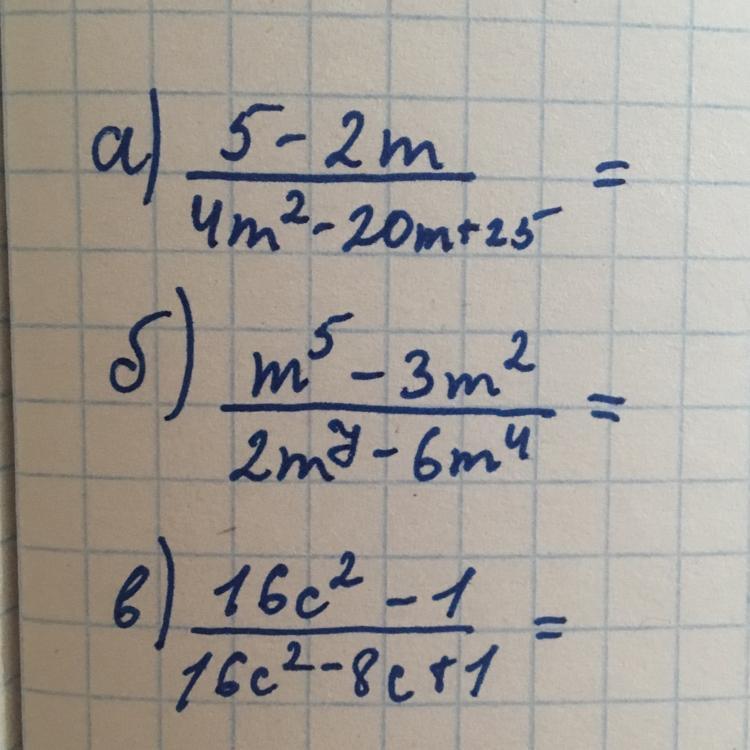 а) 5 - 2m
4m² - 20m + 25 =
б) m⁵ - 3m²
2m⁷ - 6m⁴ =
в) 16c² - 1
16c² - 8c + 1 =